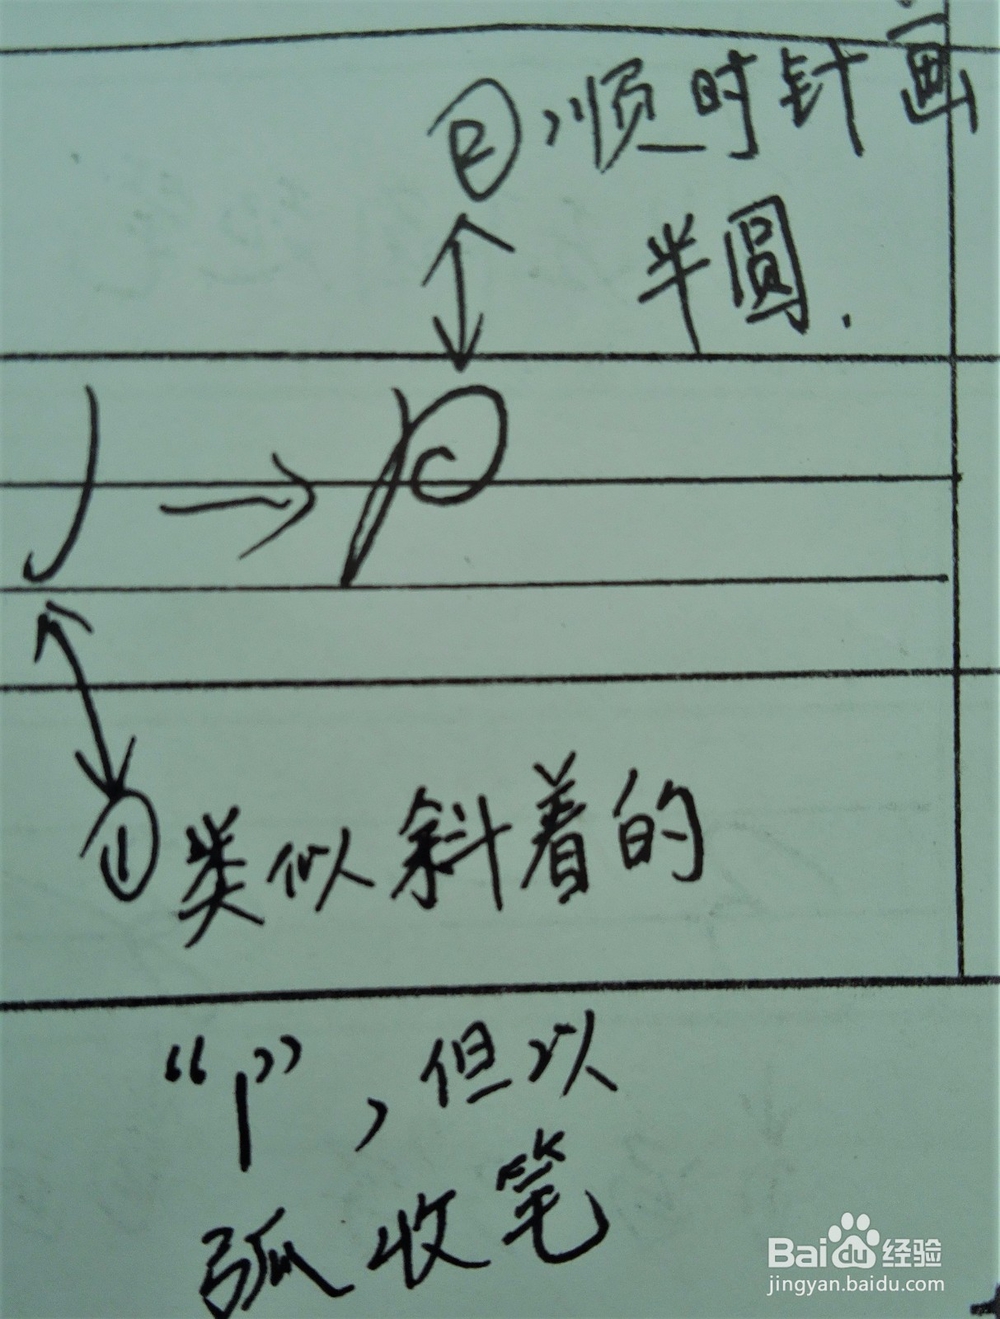 ②顺时针画
半圆.
p
①类似斜着的
“1”,但以
弧收笔
Baidu经验
jingyan.baidu.com